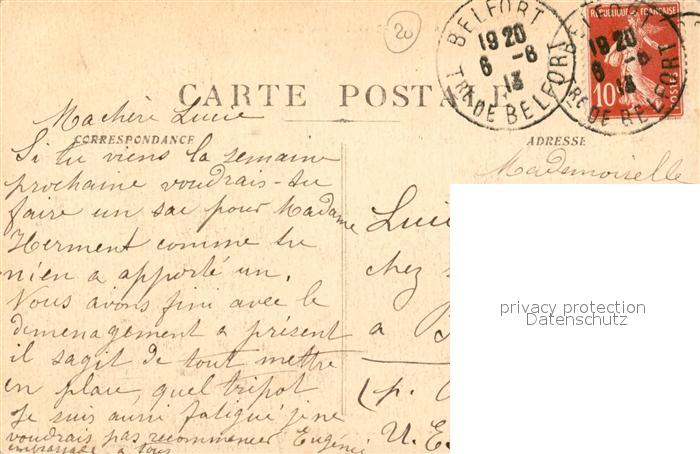 20
BELFORT
19 20
6 -6
13
TRE DE BELFORT
BELFORT
19 20
6 -6
13
RE DE BELFORT
REPUBLIQUE FRANÇAISE
10
POSTES
CARTE POSTALE
Ma chère Lucie
CORRESPONDANCE
Si tu viens la semaine
prochaine voudrais-tu
faire un sac pour Madame
Herment comme tu
m'en a apporté un.
Nous avons fini avec le
demenagement a présent
il sagit de tout mettre
en place, quel tripot
Je suis aussi fatigué je ne
voudrais pas recommencer Eugénie
embrassade a tous
ADRESSE
Mademoiselle
Luci
chez
a B
(p.
U. E
privacy protection
Datenschutz